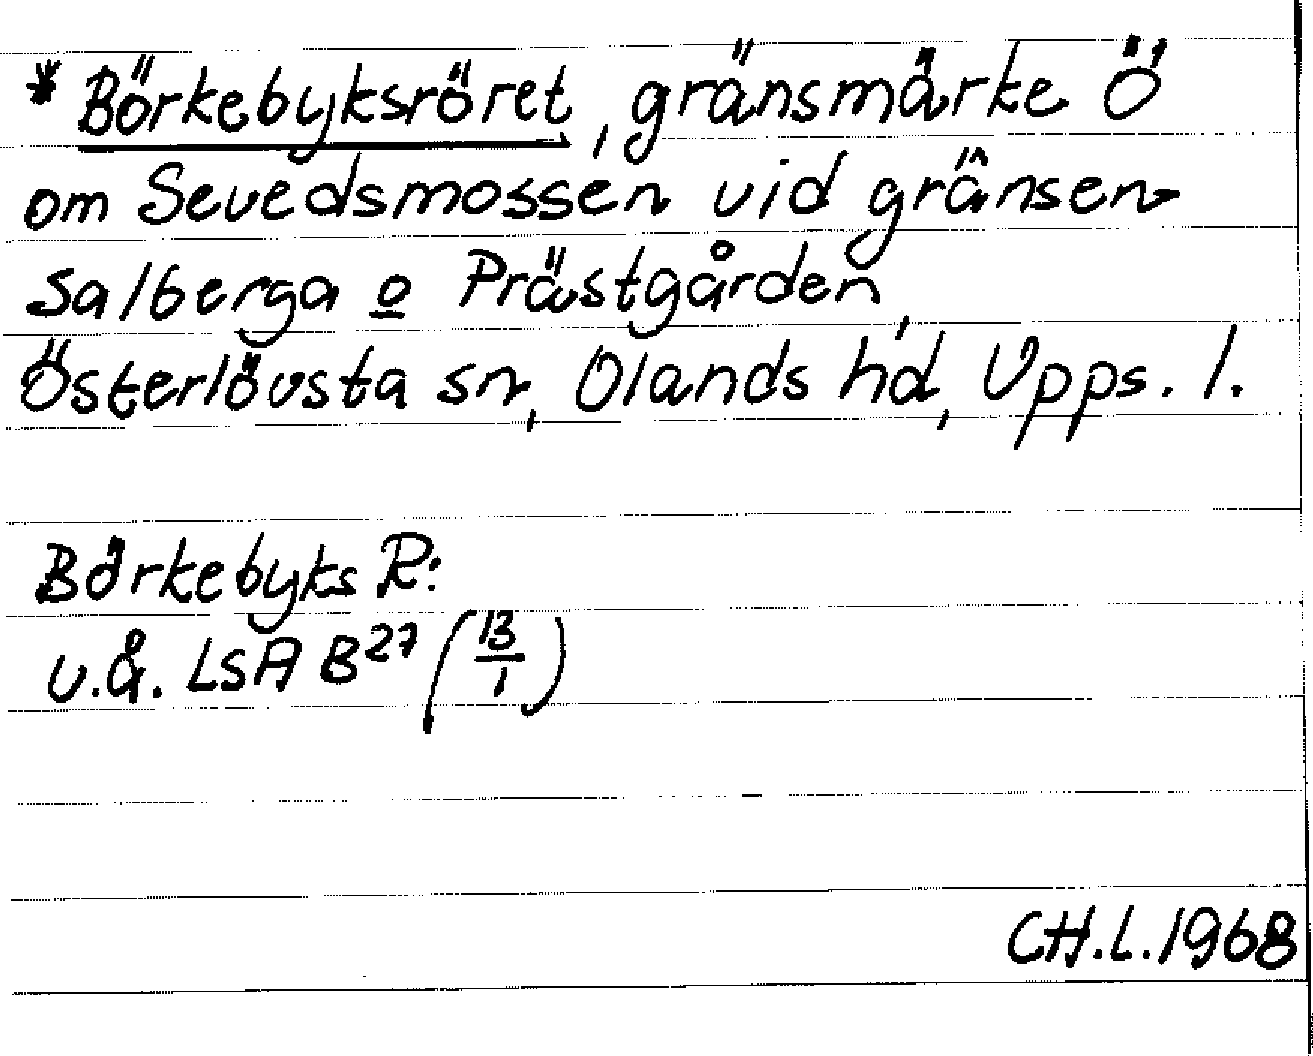 * Börkebyksröret, gränsmärke Ö
om Sevedsmossen vid gränsen
Salberga o Prästgården,
Österlövsta sn, Olands hd, Upps. l.
Börkebyks R:
u.å. LSA B27 (13/1)
CH.L.1968